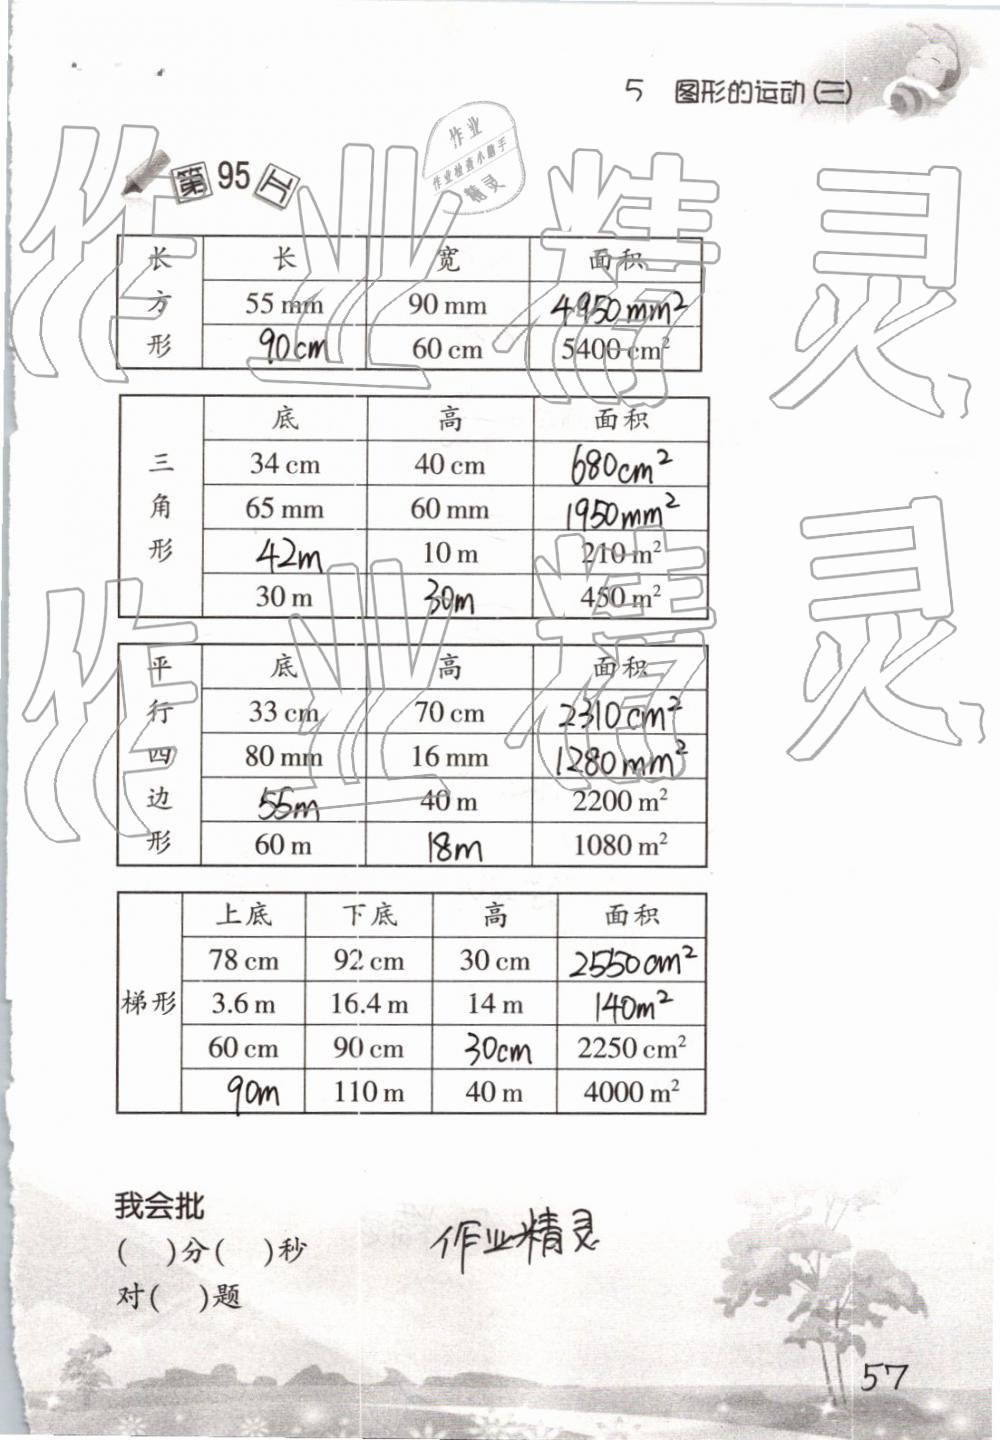 5 图形的运动(三)
作业
作业检查小助手
精灵
第95页
作业精灵
长方形 长 宽 面积
55 mm 90 mm 4950mm²
90cm 60 cm 5400 cm²
三角形 底 高 面积
34 cm 40 cm 680cm²
65 mm 60 mm 1950mm²
42m 10 m 210 m²
30 m 30m 450 m²
作业精灵
平行四边形 底 高 面积
33 cm 70 cm 2310cm²
80 mm 16 mm 1280mm²
55m 40 m 2200 m²
60 m 18m 1080 m²
梯形 上底 下底 高 面积
78 cm 92 cm 30 cm 2550cm²
3.6 m 16.4 m 14 m 140m²
60 cm 90 cm 30cm 2250 cm²
90m 110 m 40 m 4000 m²
我会批
( )分( )秒
对( )题
作业精灵
57